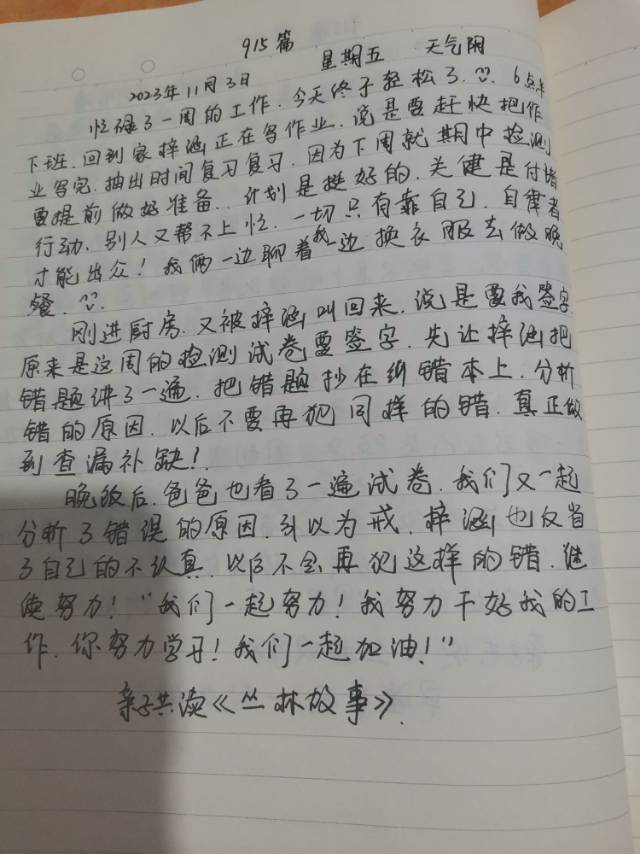 915篇
2023年11月3日 星期五 天气阴
忙碌了一周的工作,今天终于轻松了。6点半
下班,回到家梓涵正在写作业,说是要赶快把作
业写完,抽出时间复习复习,因为下周就期中检测
要提前做好准备,计划是挺好的,关健是付诸
行动,别人又帮不上忙,一切只有靠自己,自律者
才能出众!我俩一边聊着我一边换衣服去做晚
餐。
刚进厨房,又被梓涵叫回来,说是要我签字,
原来是这周的检测试卷要签字,先让梓涵把
错题讲了一遍,把错题抄在纠错本上,分析
错的原因,以后不要再犯同样的错,真正做
到查漏补缺!
晚饭后,爸爸也看了一遍试卷,我们又一起
分析了错误的原因,引以为戒,梓涵也反省
了自己的不认真,以后不会再犯这样的错,继
续努力!“我们一起努力!我努力干好我的工
作,你努力学习!我们一起加油!”
亲子共读《丛林故事》.